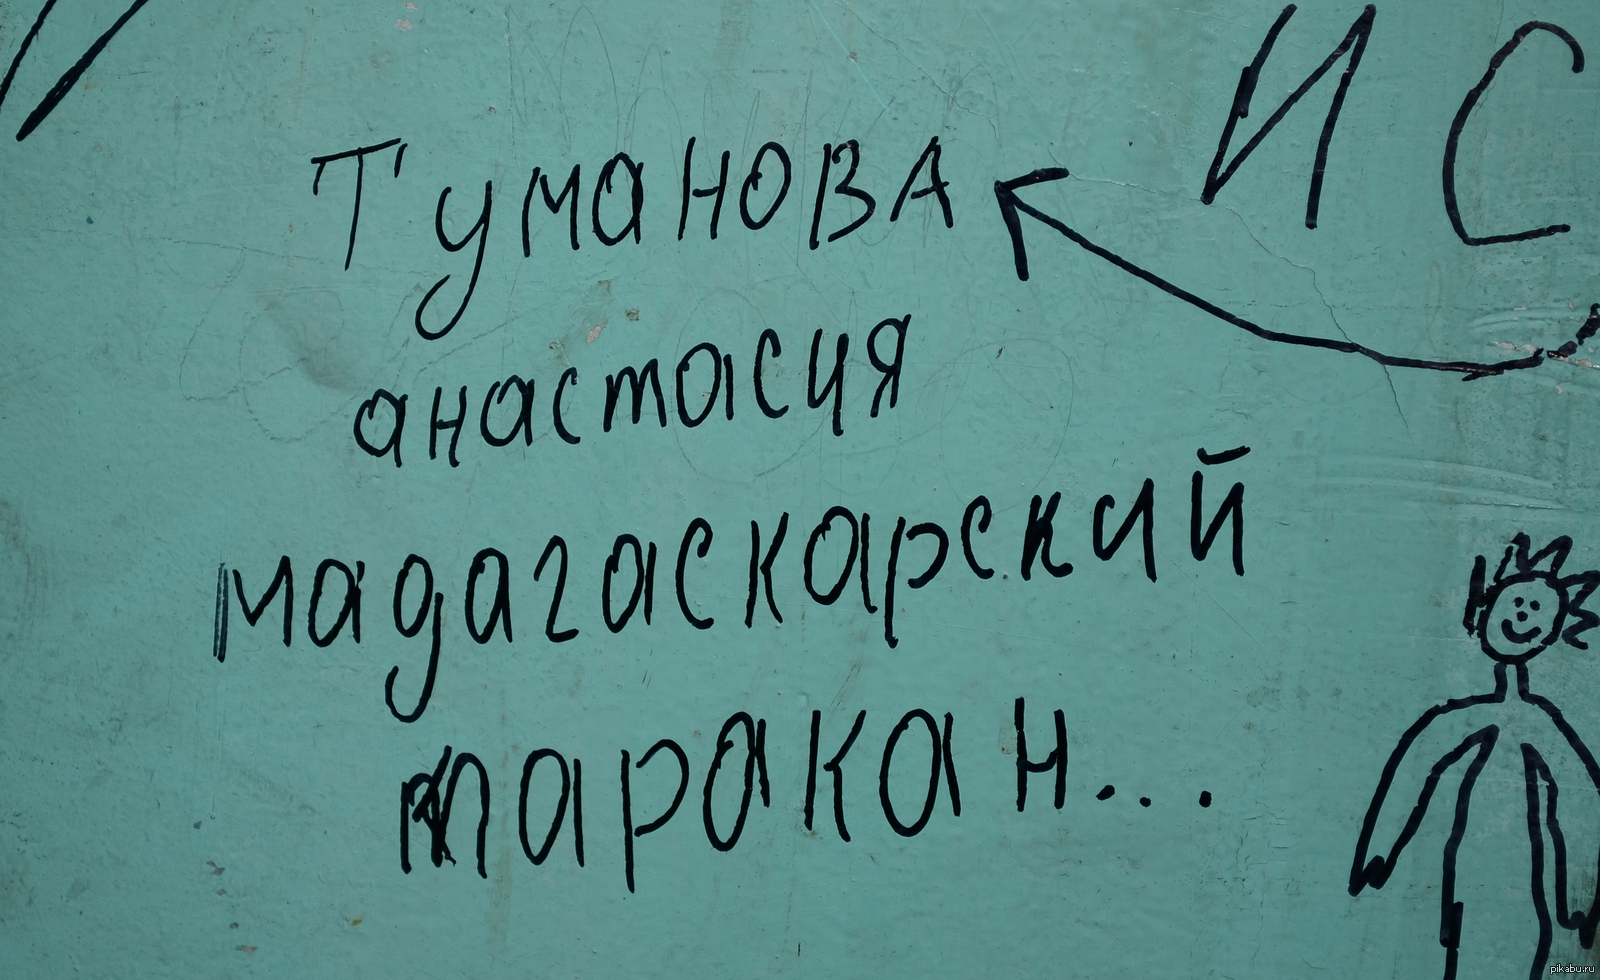 И С
Туманова
анастасия
мадагаскарский
таракан...
pikabu.ru